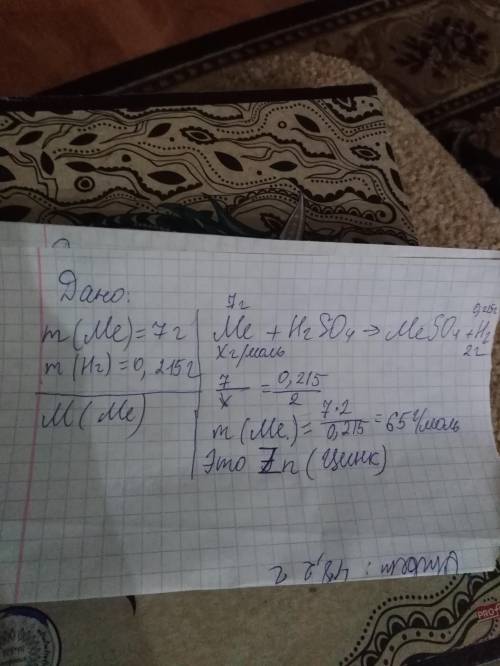 Дано:
m(Me)=7г
m(H2)=0,215г
M(Me)
7г 0,215г
Me + H2SO4 → MeSO4 + H2
Xг/моль 2г
7/x = 0,215/2
m(Me) = 7·2/0,215 = 65 г/моль
Это Zn (Цинк)
Ответ: 48,2 г
PRO